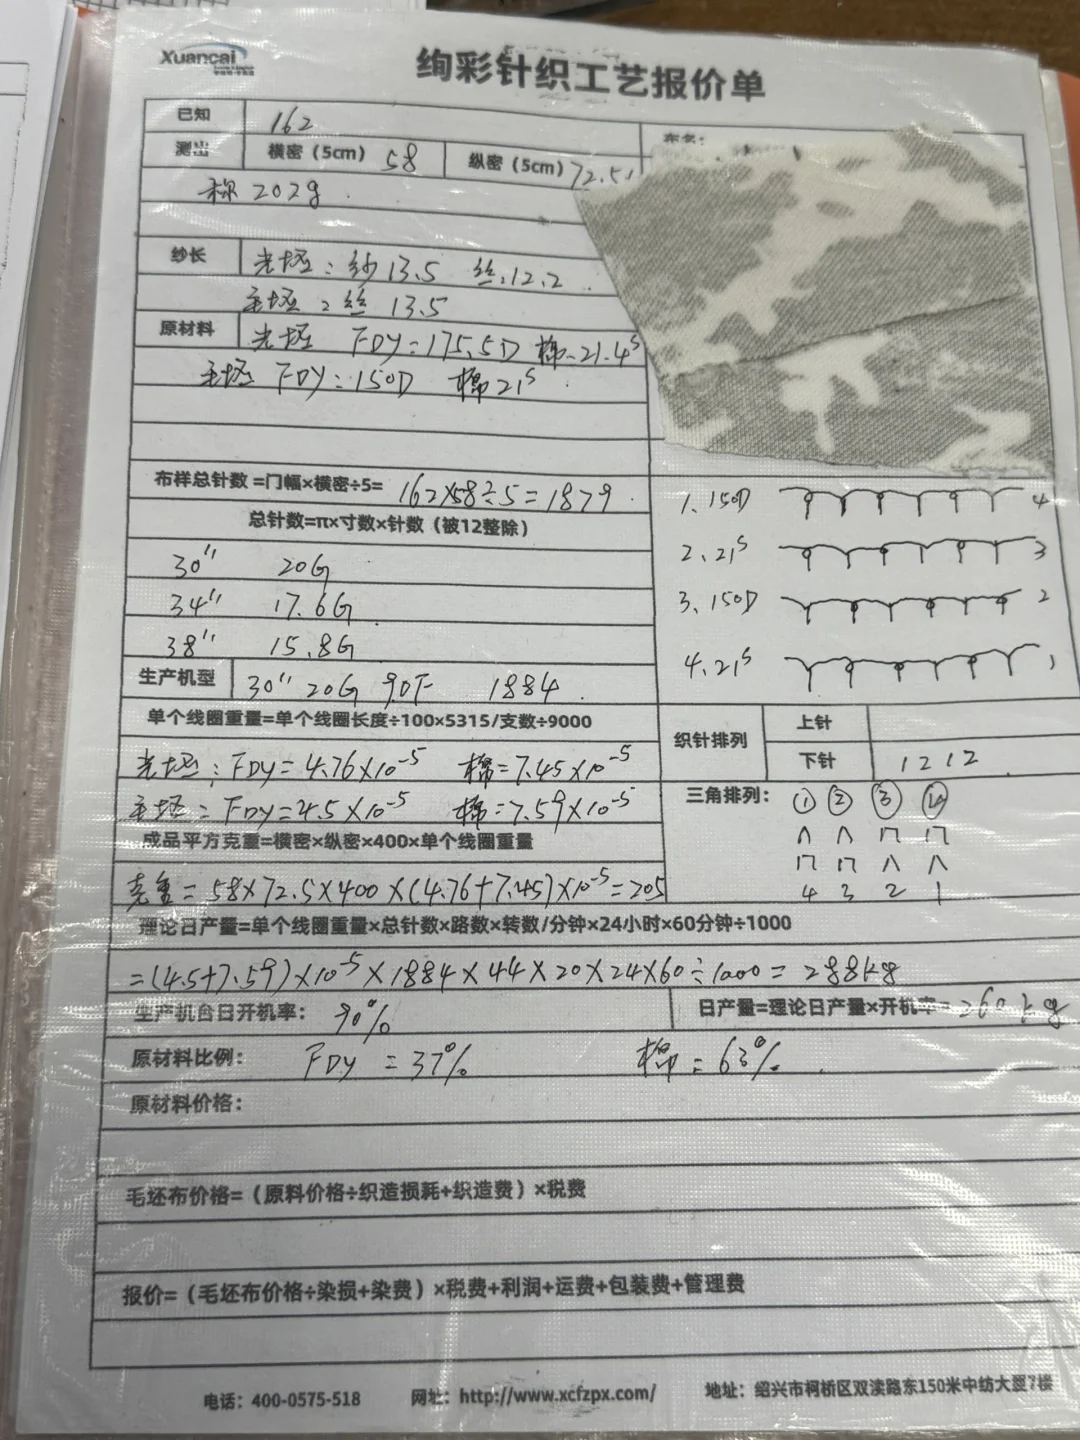 Xuancai
绚彩针织工艺报价单
已知 162
布名：
测出 横密（5cm） 58 纵密（5cm） 72.5
称 202g
纱长 光坯：纱 13.5 丝：12.2
毛坯：丝 13.5
原材料 光坯 FDY=175.5D 棉=21.4s
毛坯 FDY：150D 棉21s
布样总针数=门幅×横密÷5= 162×58÷5=1879
总针数=π×寸数×针数（被12整除）
30'' 20G
34'' 17.6G
38'' 15.8G
生产机型 30'' 20G 90F 1884
1、150D 4
2、21s 3
3、150D 2
4、21s 1
单个线圈重量=单个线圈长度÷100×5315/支数÷9000
光坯：FDY=4.76×10-5 棉=7.45×10-5
毛坯：FDY=4.5×10-5 棉=7.59×10-5
织针排列 上针
下针 1212
三角排列： ① ② ③ ④
∧ ∧ ⊓ ⊓
⊓ ⊓ ∧ ∧
4 3 2 1
成品平方克重=横密×纵密×400×单个线圈重量
克重=58×72.5×400×(4.76+7.45)×10-5=205
理论日产量=单个线圈重量×总针数×路数×转数/分钟×24小时×60分钟÷1000
=(4.5+7.59)×10-5×1884×44×20×24×60÷1000=288kg
生产机台日开机率： 90% 日产量=理论日产量×开机率=260kg
原材料比例： FDY=37% 棉=63%
原材料价格：
毛坯布价格=（原料价格÷织造损耗+织造费）×税费
报价=（毛坯布价格÷染损+染费）×税费+利润+运费+包装费+管理费
电话：400-0575-518 网址：http://www.xcfzpx.com/ 地址：绍兴市柯桥区双渎路东150米中纺大厦7楼